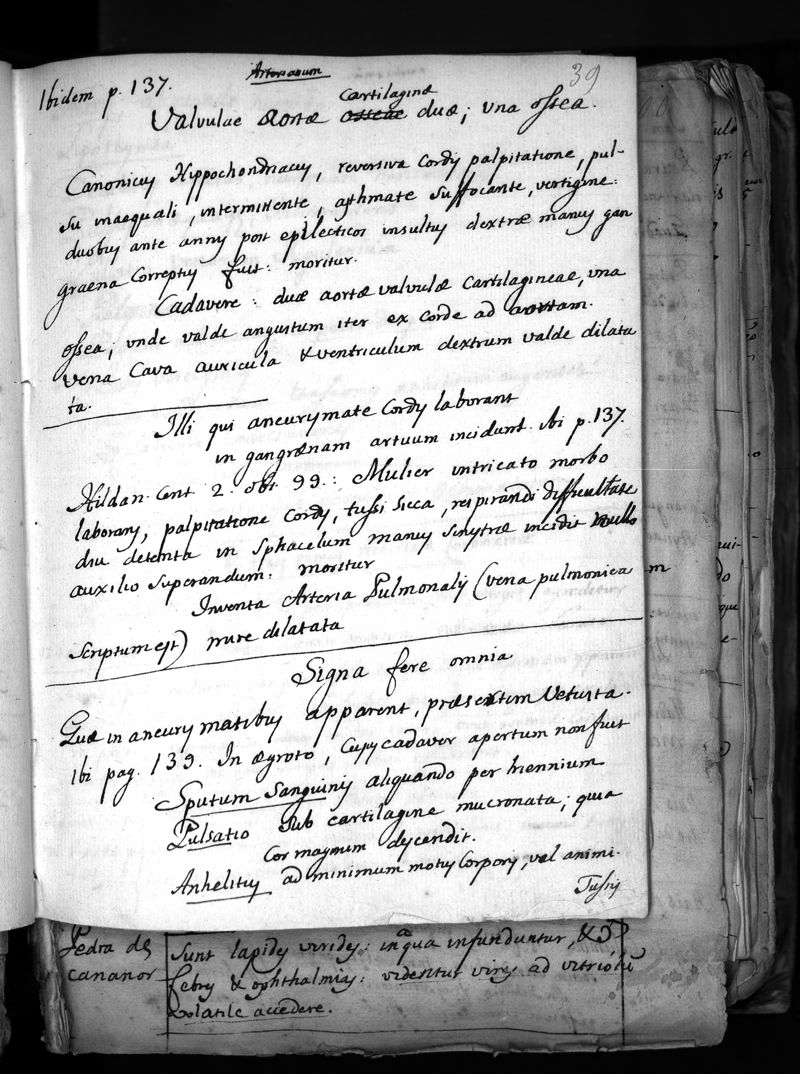 39
Arteriarum
Ibidem p. 137.
Cartilaginæ
Valvulae Aortæ osseae duæ; una ossea.
Canonicus Hippochondriacus, reversiva Cordis palpitatione, pul-
su inaequali, intermittente, asthmate suffocante, vertigine:
duobus ante annis post epilecticos insultus dextræ manus gan
graena Correptus fuit: moritur.
Cadavere: duæ aortæ valvulæ Cartilagineae, una
ossea; unde valde angustum iter ex Corde ad aortam.
Vena Cava auricula & ventriculum dextrum valde dilata
ta.
Illi qui aneurysmate Cordis laborant
in gangrænam artuum incidunt. ibi p. 137.
Hildan. Cent. 2. obs. 99.: Mulier intricato morbo
laborans, palpitatione Cordis, tussi sicca, respirandi difficultate
diu detenta in Sphacelum manus sinistræ incidit nullo
auxilio superandum: moritur
Inventa Arteria Pulmonalis (vena pulmonica m
Scriptum est) mire dilatata
Signa fere omnia
Quæ in aneurysmatibus apparent, præsertim Vetusta.
Ibi pag. 139. In ægroto, Cujus cadaver apertum non fuit
Sputum Sanguinis aliquando per hiennium
Pulsatio sub cartilagine mucronata; quia
Cor magnum descendit.
Anhelitus ad minimum motus Corporis, vel animi.
Tussis
Pedra de
Cananor
Sunt lapides virides: in aqua infunduntur, &
febris & ophthalmias: videntur vires ad vitriolũ
volatile accedere.